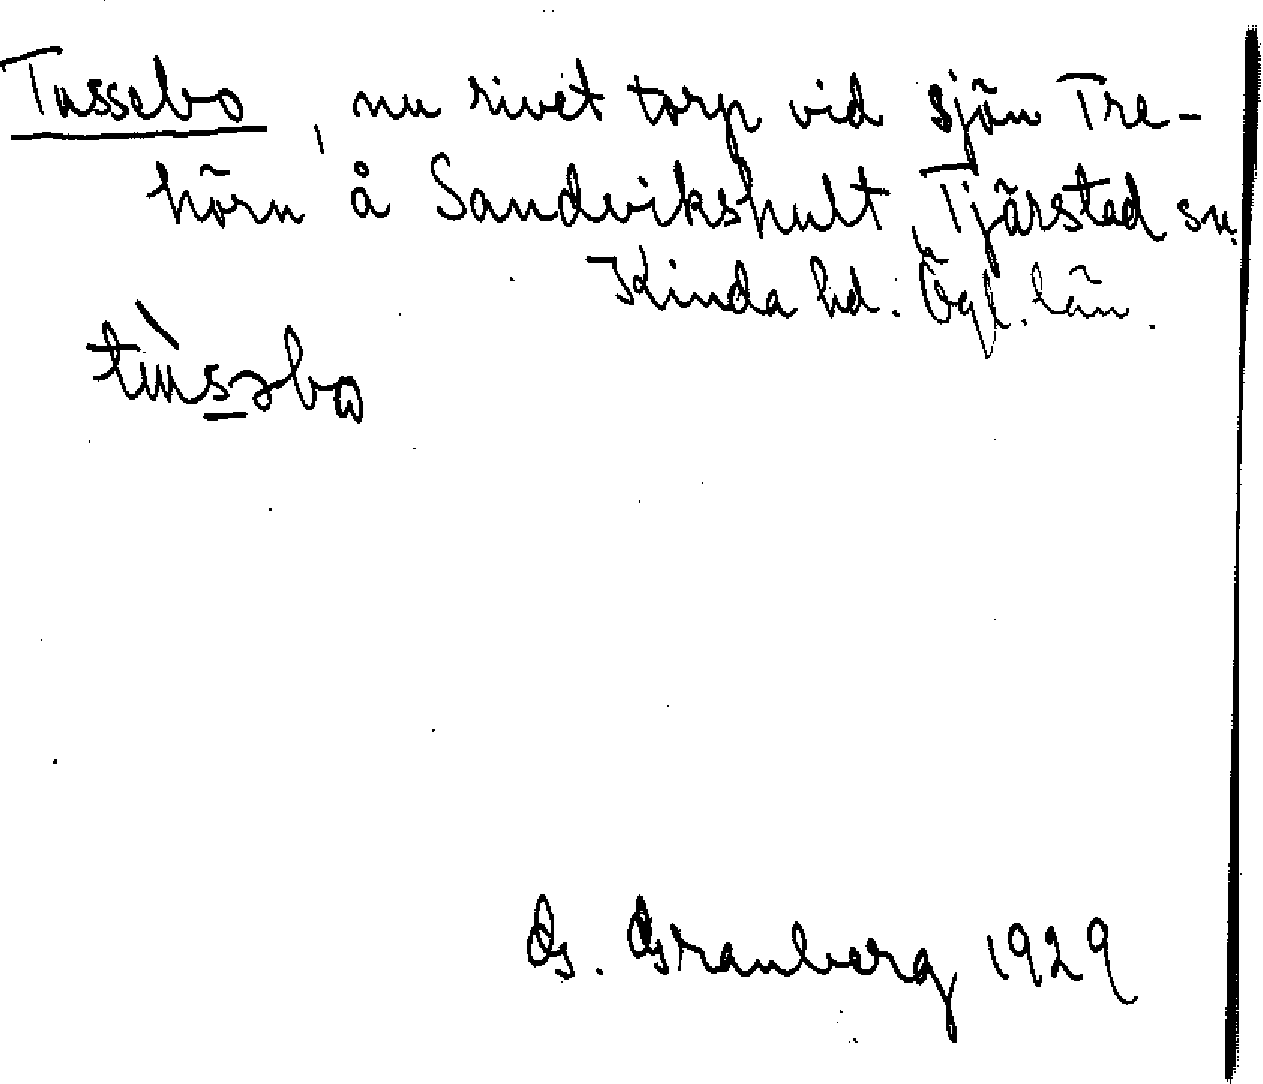 Tussebo, nu rivet torp vid sjön Tre-
hörn å Sandvikshult, Tjärstad sn.
Kinda hd. Ögl. län.
G. Granberg 1929